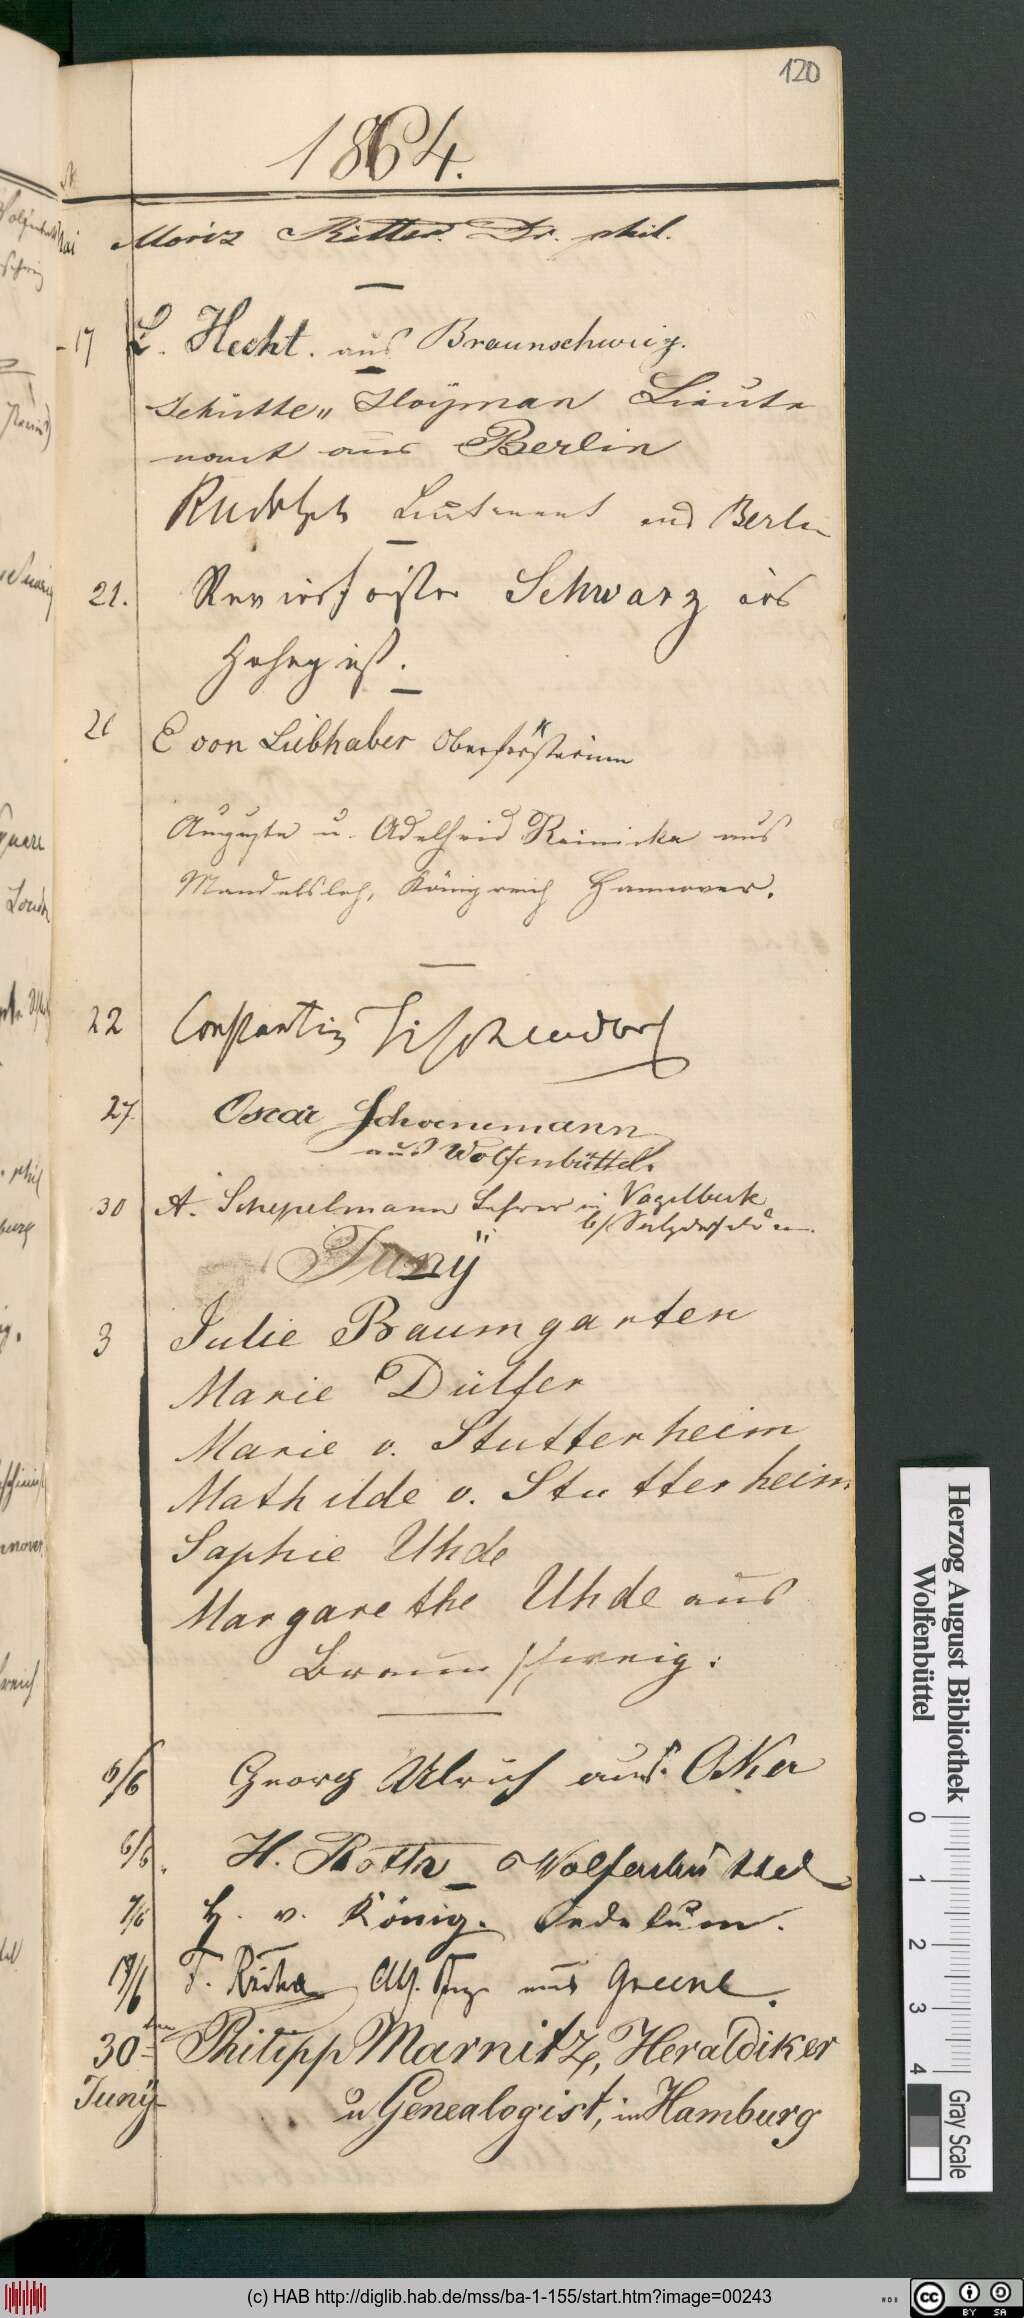 120
1864.
Mai Moriz Ritter. Dr. phil.
- 17 L. Hecht. aus Braunschweig.
Schütte „ Hoÿman Lieute
nant aus Berlin
Rudolph Leutenant aus Berlin
21. Revierförster Schwarz aus
21 E von Liebhaber Oberförsterinn
Auguste u. Adelheid Reinicke aus
Mandelsloh, Königreich Hannover.
22 Constantin Tischendorf
27. Oscar Schoenemann
aus Wolfenbüttel.
30 A. Schepelmann Lehrer in Vogelbeck
b/ Salzderhelden.
Junÿ
3 Julie Baumgarten
Marie Dülfer
Marie v. Stutterheim
Mathilde v. Stutterheim
Sophie Uhde
Margarethe Uhde aus
Braunschweig.
6/6 Georg Ulrich aus Oker
6/6. H. Roth Wolfenbüttel
7/6 H. v. König. Sedelum.
19/6 F. aus Greene.
30ten Philipp Marnitz, Heraldiker
Junÿ u Genealogist, in Hamburg
Herzog August Bibliothek
Wolfenbüttel
0 1 2 3 4
Gray Scale
(c) HAB http://diglib.hab.de/mss/ba-1-155/start.htm?image=00243
cc BY SA